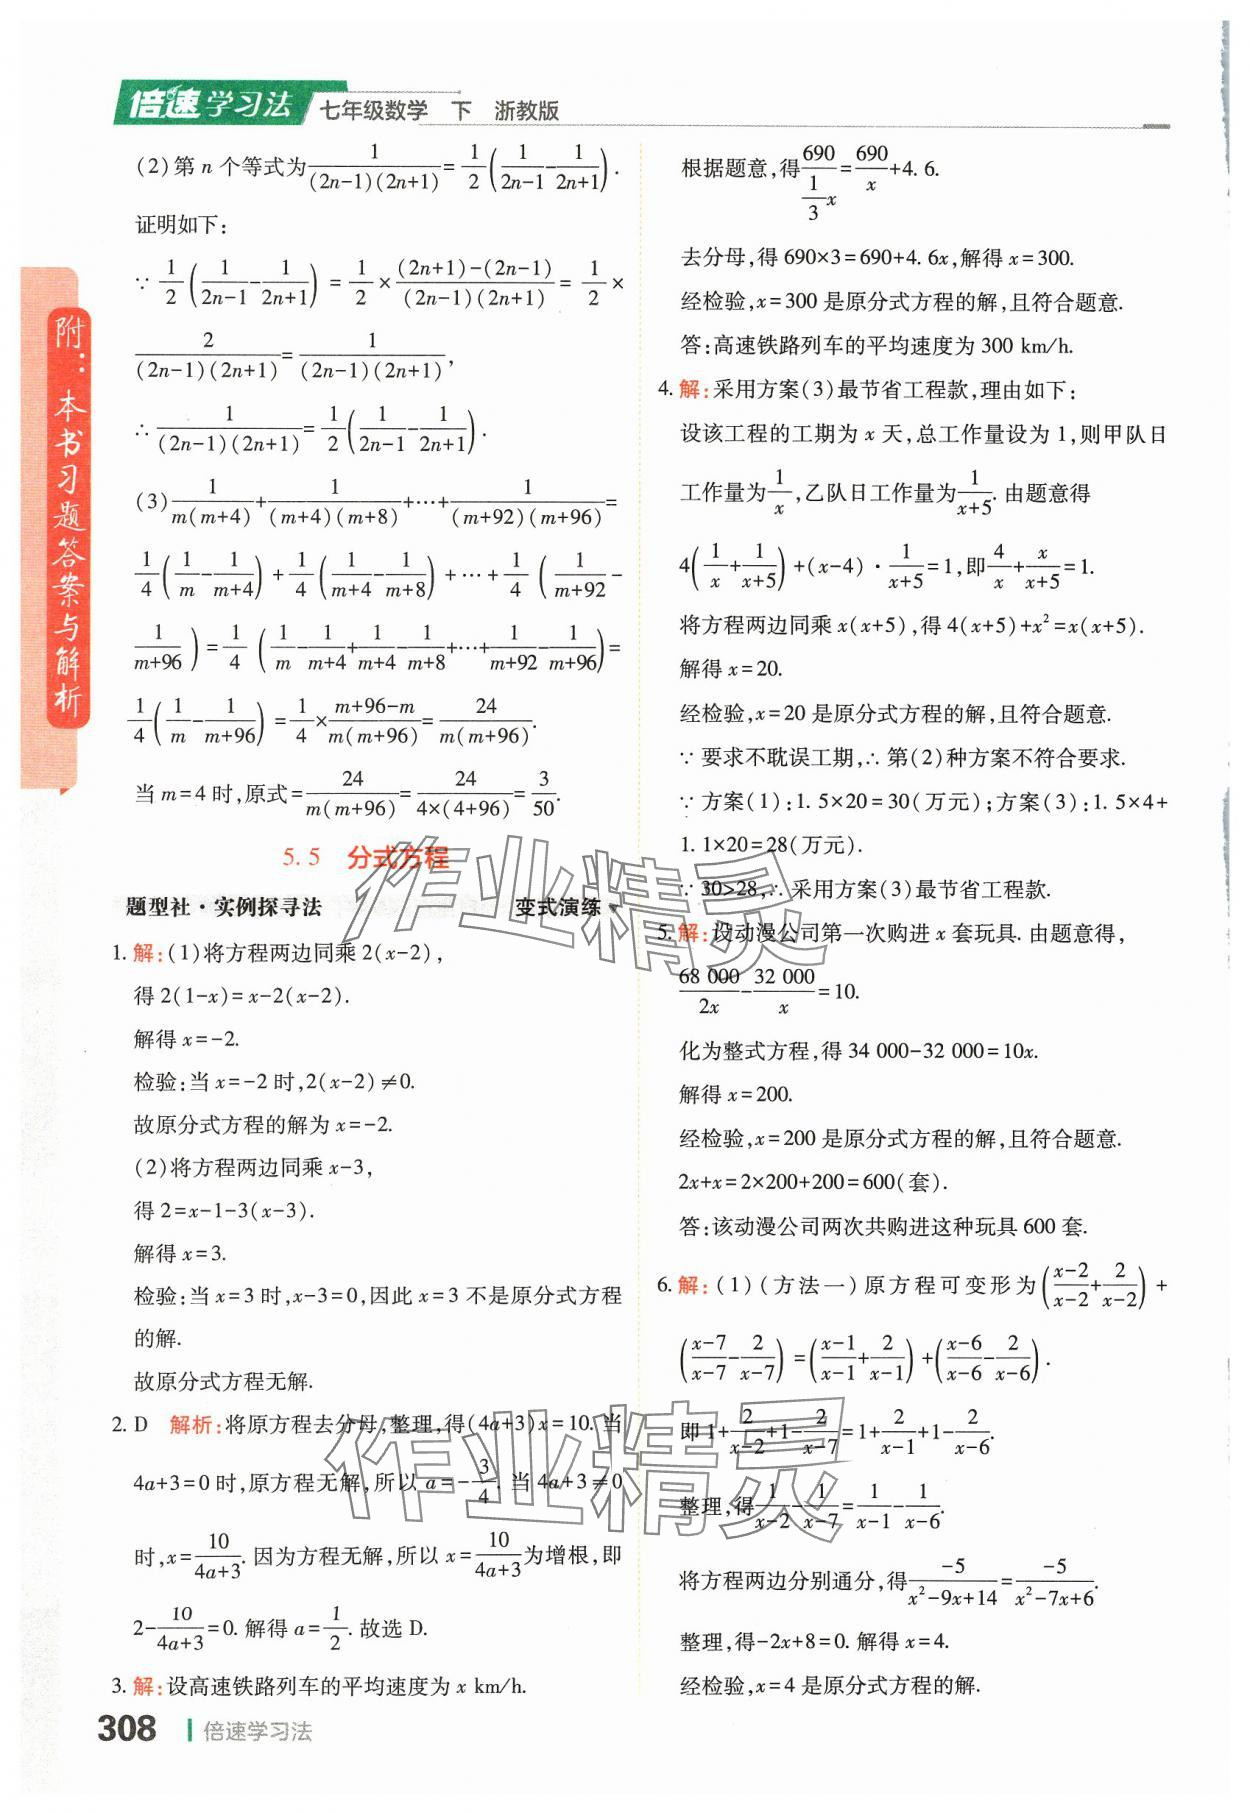 倍速学习法 七年级数学 下 浙教版
附：本书习题答案与解析
(2)第 n 个等式为\frac{1}{(2n-1)(2n+1)}=\frac{1}{2}(\frac{1}{2n-1}-\frac{1}{2n+1}).
证明如下:
∵ \frac{1}{2}(\frac{1}{2n-1}-\frac{1}{2n+1})=\frac{1}{2}×\frac{(2n+1)-(2n-1)}{(2n-1)(2n+1)}=\frac{1}{2}×
\frac{2}{(2n-1)(2n+1)}=\frac{1}{(2n-1)(2n+1)},
∴ \frac{1}{(2n-1)(2n+1)}=\frac{1}{2}(\frac{1}{2n-1}-\frac{1}{2n+1}).
(3)\frac{1}{m(m+4)}+\frac{1}{(m+4)(m+8)}+…+\frac{1}{(m+92)(m+96)}=
\frac{1}{4}(\frac{1}{m}-\frac{1}{m+4})+\frac{1}{4}(\frac{1}{m+4}-\frac{1}{m+8})+…+\frac{1}{4}(\frac{1}{m+92}-
\frac{1}{m+96})=\frac{1}{4}(\frac{1}{m}-\frac{1}{m+4}+\frac{1}{m+4}-\frac{1}{m+8}+…+\frac{1}{m+92}-\frac{1}{m+96})=
\frac{1}{4}(\frac{1}{m}-\frac{1}{m+96})=\frac{1}{4}×\frac{m+96-m}{m(m+96)}=\frac{24}{m(m+96)}.
当 m=4 时,原式=\frac{24}{m(m+96)}=\frac{24}{4×(4+96)}=\frac{3}{50}.
5.5 分式方程
题型社·实例探寻法 变式演练
1. 解:(1)将方程两边同乘 2(x-2),
得 2(1-x)=x-2(x-2).
解得 x=-2.
检验:当 x=-2 时,2(x-2)≠0.
故原分式方程的解为 x=-2.
(2)将方程两边同乘 x-3,
得 2=x-1-3(x-3).
解得 x=3.
检验:当 x=3 时,x-3=0,因此 x=3 不是原分式方程
的解.
故原分式方程无解.
2. D 解析:将原方程去分母,整理,得(4a+3)x=10. 当
4a+3=0 时,原方程无解,所以 a=-\frac{3}{4}. 当 4a+3≠0
时,x=\frac{10}{4a+3}. 因为方程无解,所以 x=\frac{10}{4a+3}为增根,即
2-\frac{10}{4a+3}=0. 解得 a=\frac{1}{2}. 故选 D.
3. 解:设高速铁路列车的平均速度为 x km/h.
根据题意,得\frac{690}{\frac{1}{3}x}=\frac{690}{x}+4.6.
去分母,得 690×3=690+4.6x,解得 x=300.
经检验,x=300 是原分式方程的解,且符合题意.
答:高速铁路列车的平均速度为 300 km/h.
4. 解:采用方案(3)最节省工程款,理由如下:
设该工程的工期为 x 天,总工作量设为 1,则甲队日
工作量为\frac{1}{x},乙队日工作量为\frac{1}{x+5}. 由题意得
4(\frac{1}{x}+\frac{1}{x+5})+(x-4)·\frac{1}{x+5}=1,即\frac{4}{x}+\frac{x}{x+5}=1.
将方程两边同乘 x(x+5),得 4(x+5)+x²=x(x+5).
解得 x=20.
经检验,x=20 是原分式方程的解,且符合题意.
∵ 要求不耽误工期,∴ 第(2)种方案不符合要求.
∵ 方案(1):1.5×20=30(万元);方案(3):1.5×4+
1.1×20=28(万元).
∵ 30>28,∴ 采用方案(3)最节省工程款.
5. 解:设动漫公司第一次购进 x 套玩具. 由题意得,
\frac{68 000}{2x}-\frac{32 000}{x}=10.
化为整式方程,得 34 000-32 000=10x.
解得 x=200.
经检验,x=200 是原分式方程的解,且符合题意.
2x+x=2×200+200=600(套).
答:该动漫公司两次共购进这种玩具 600 套.
6. 解:(1)(方法一)原方程可变形为(\frac{x-2}{x-2}+\frac{2}{x-2})+
(\frac{x-7}{x-7}-\frac{2}{x-7})=(\frac{x-1}{x-1}+\frac{2}{x-1})+(\frac{x-6}{x-6}-\frac{2}{x-6}).
即 1+\frac{2}{x-2}+1-\frac{2}{x-7}=1+\frac{2}{x-1}+1-\frac{2}{x-6}.
整理,得\frac{1}{x-2}-\frac{1}{x-7}=\frac{1}{x-1}-\frac{1}{x-6}.
将方程两边分别通分,得\frac{-5}{x²-9x+14}=\frac{-5}{x²-7x+6}.
整理,得-2x+8=0. 解得 x=4.
经检验,x=4 是原分式方程的解.
308 倍速学习法
作业精灵
作业精灵